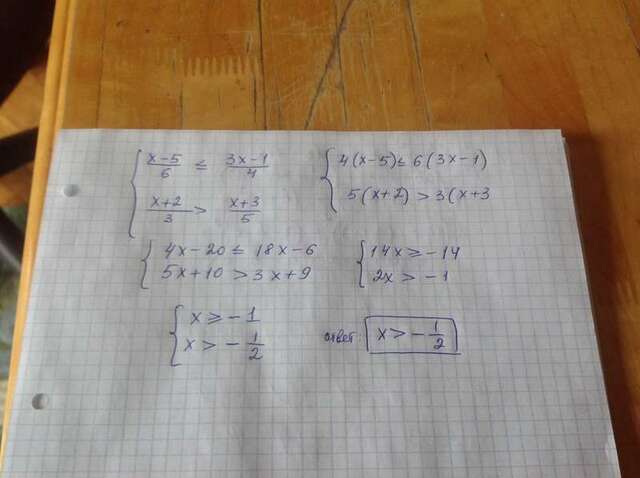 { (x-5)/6 ≤ (3x-1)/4
(x+2)/3 > (x+3)/5
{ 4(x-5) ≤ 6(3x-1)
5(x+2) > 3(x+3
{ 4x-20 ≤ 18x-6
5x+10 > 3x+9
{ 14x ≥ -14
2x > -1
{ x ≥ -1
x > -1/2
ответ: x > -1/2